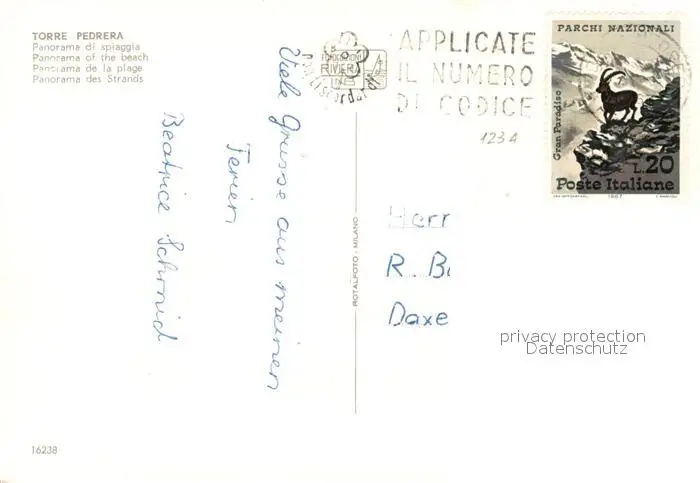 TORRE PEDRERA
Panorama di spiaggia
Panorama of the beach
Panorama de la plage
Panorama des Strands
RIVIERA
APPLICATE
IL NUMERO
DI CODICE
1234
PARCHI NAZIONALI
Gran Paradiso
L.20
Poste Italiane
1967
Viele Grüsse aus meinen
Ferien
Beatrice Schmid
ROTALFOTO - MILANO
Herr
R. B
Daxe
privacy protection
Datenschutz
16238